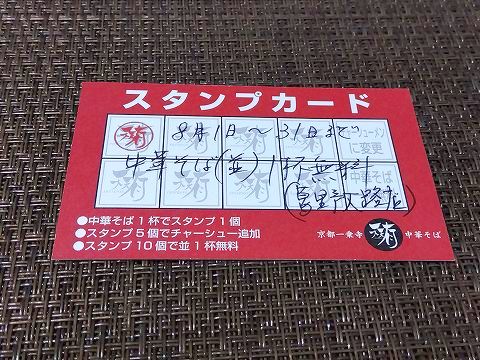 スタンプカード
8月1日〜31日まで
中華そば(並)1杯無料
に変更
中華そば
●中華そば1杯でスタンプ1個
●スタンプ5個でチャーシュー追加
●スタンプ10個で並1杯無料
京都一乗寺
中華そば